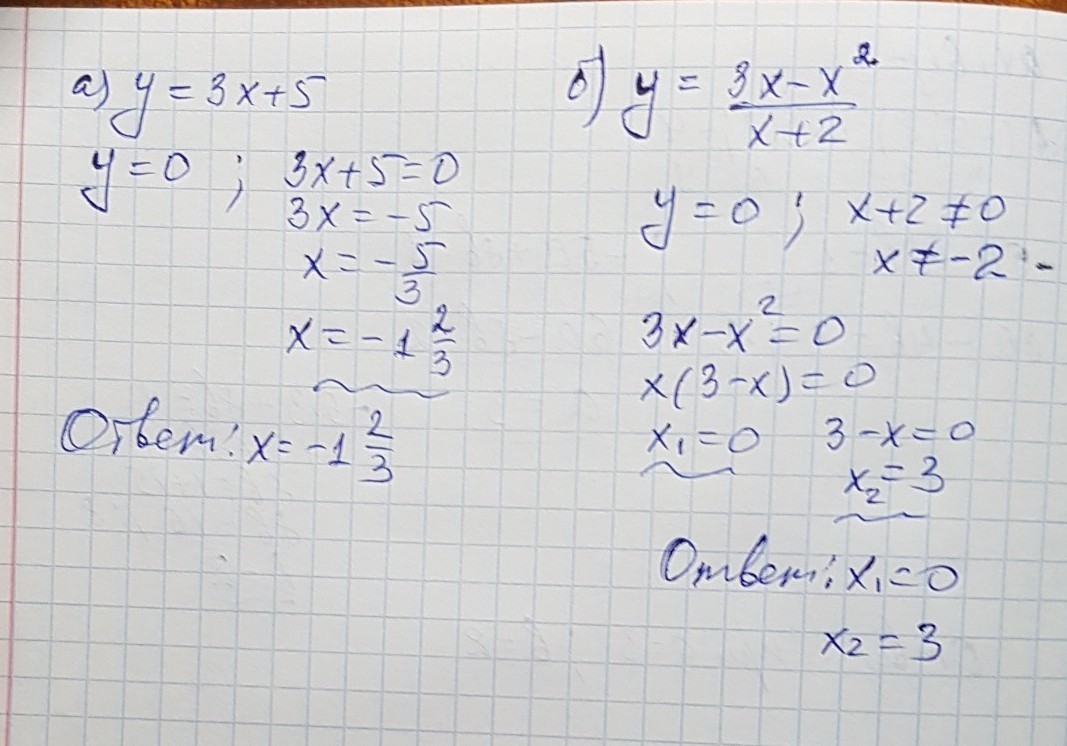 а) y = 3x+5
y=0 ; 3x+5=0
3x = -5
x = -5/3
x = -1 2/3
Ответ: x = -1 2/3
б) y = (3x-x²)/(x+2)
y = 0 ; x+2 ≠ 0
x ≠ -2
3x-x² = 0
x(3-x) = 0
x₁=0 3-x=0
x₂=3
Ответ: x₁=0
x₂ = 3